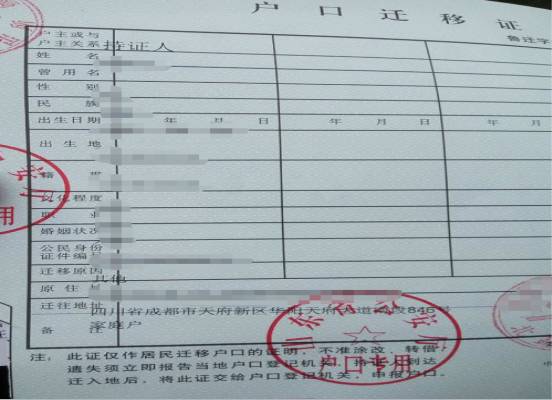 户口迁移证
鲁迁字
户主或与
户主关系
持证人
姓名
曾用名
性别
民族
出生日期 年 月 日 年 月 日 年 月
出生地
籍贯
文化程度
职业
婚姻状况
公民身份
证件编号
迁移原因 其他
原住址
迁往地址 四川省成都市天府新区华阳天府大道南段846号
备注 家庭户
山东省公安厅
户口专用
专用
注: 此证仅作居民迁移户口的证明,不准涂改、转借,
遗失须立即报告当地户口登记机关,持证人到达
迁入地后,将此证交给户口登记机关,申报户口。